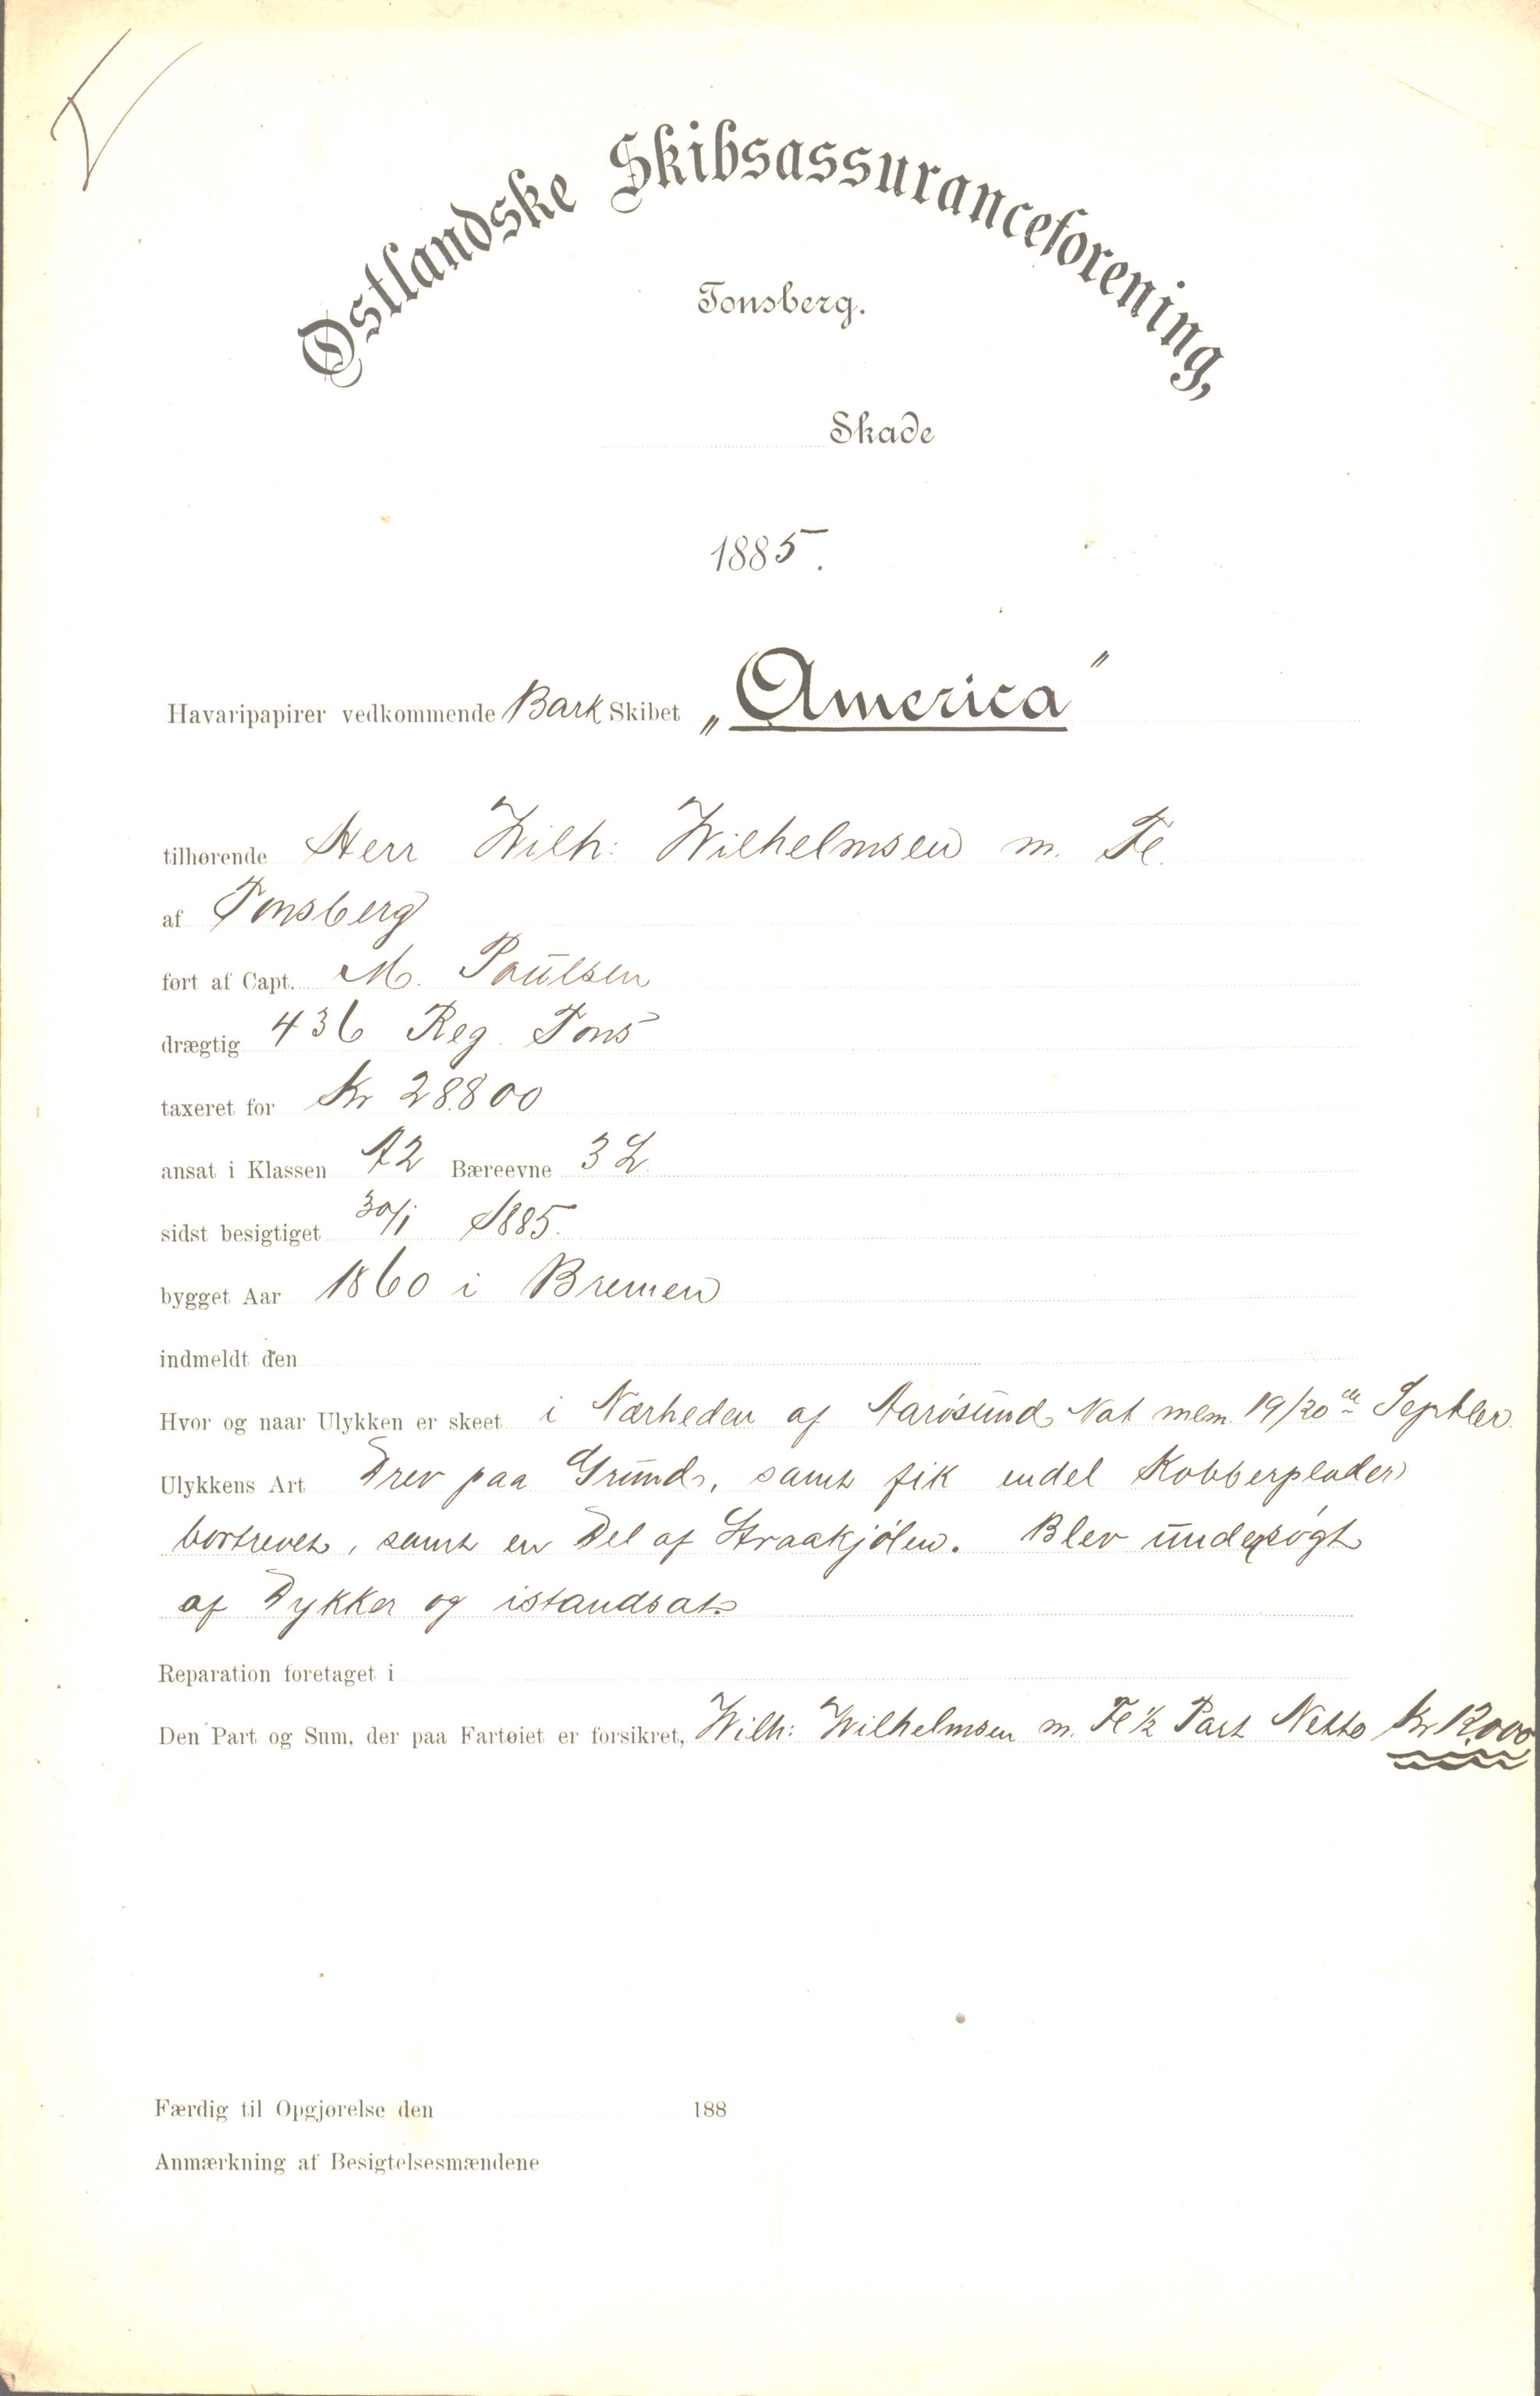 Østlandske Skibsassuranceforening,
Tønsberg.
Skade
1885.
Havaripapirer vedkommende Bark Skibet „America"
tilhørende Herr Wilh: Wilhelmsen m. Fl.
af Tønsberg
ført af Capt. M. Paulsen
drægtig 436 Reg. Tons
taxeret for Kr 28.800
ansat i Klassen A2 Bæreevne 3 L
sidst besigtiget 30/1 1885.
bygget Aar 1860 i Bremen
indmeldt den
Hvor og naar Ulykken er skeet i Nærheden af Aarøsund Nat mem. 19/20de Septber.
Ulykkens Art Drev paa Grund, samt fik endel Kobberplader
bortrevet, samt en Del af Straakjølen. Blev undersøgt
af Dykker og istandsat
Reparation foretaget i
Den Part og Sum, der paa Fartøiet er forsikret, Wilh: Wilhelmsen m. Fl ½ Part Netto Kr 12,000
Færdig til Opgjørelse den 188
Anmærkning af Besigtelsesmændene